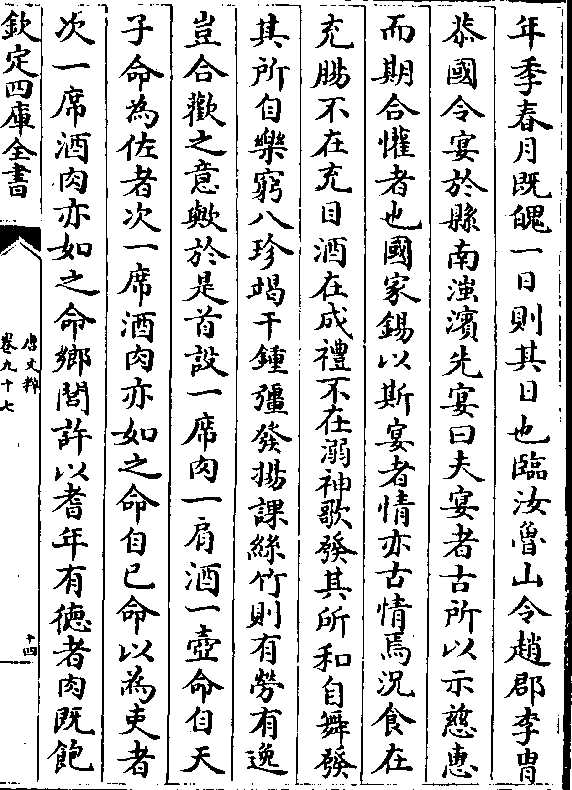 年季春月既魄一日則其日也臨汝魯山令趙郡李胄
恭國令宴於縣南滍濱先宴曰夫宴者古所以示慈惠
而期合懽者也國家錫以斯宴者情亦古情焉況食在
充腸不在充目酒在成禮不在溺神歌發其所和自舞發
其所自樂窮八珍竭千鍾彊發揚課絲竹則有勞有逸
豈合歡之意歟於是首設一席肉一肩酒一壺命自天
子命為佐者次一席酒肉亦如之命自已命以為吏者
次一席酒肉亦如之命鄉閭許以耆年有德者肉既飽
欽定四庫全書
唐文粹
卷九十七
十四